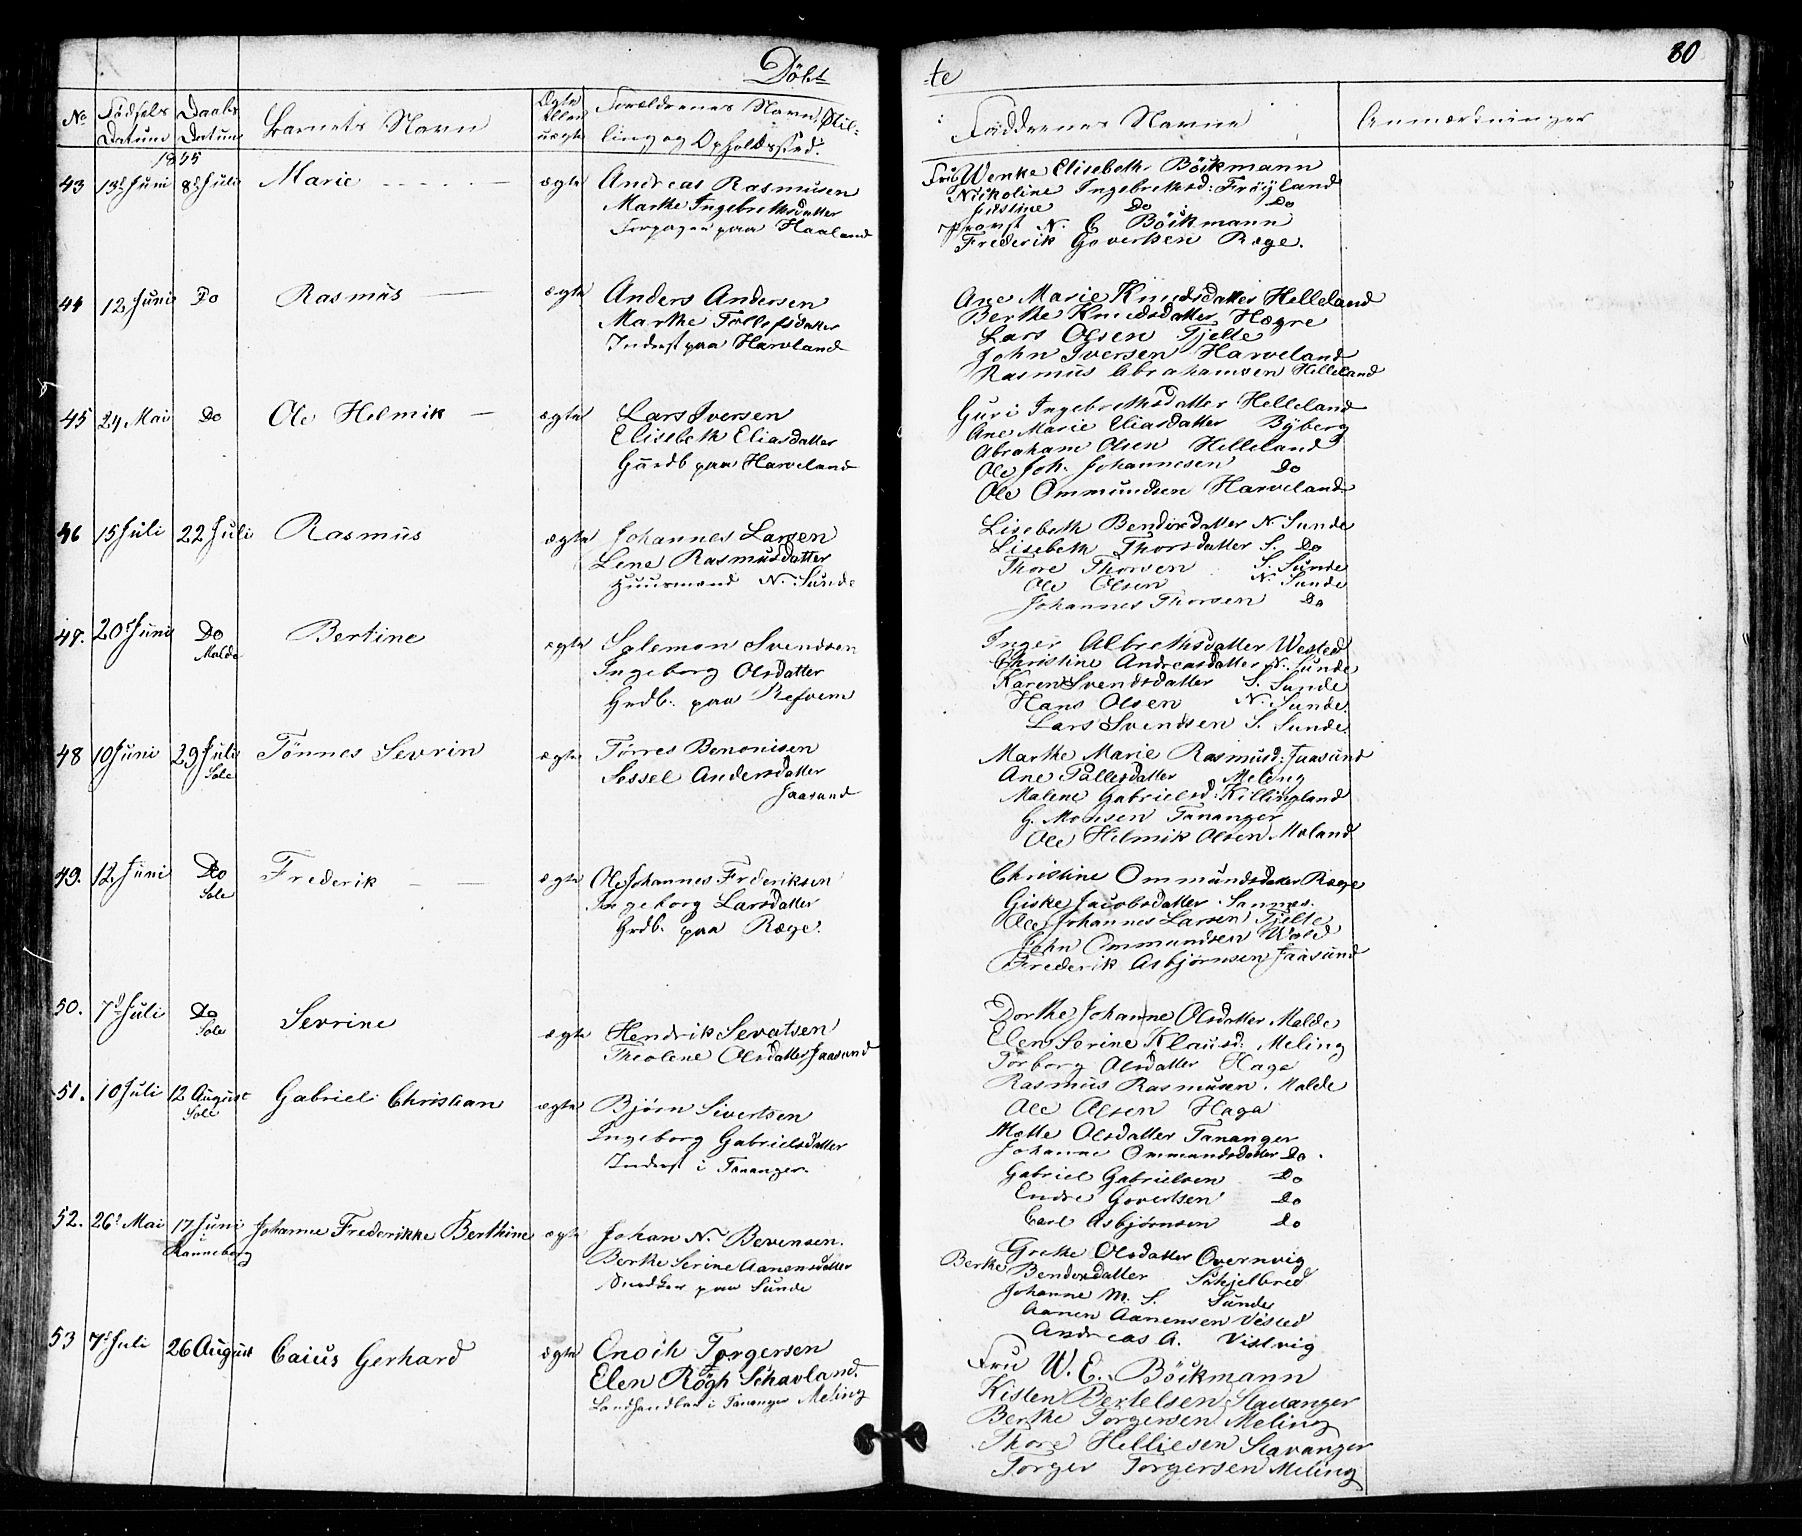 Döbt
te
80
No
Födsels Datum
Daabs Datum
Barnets Navn
Ægte Eller uægte
Forældrenes Navn, Stil-
ling og Opholdssted.
Faddrenes Navne
Anmærkninger
1855
43 13de Juni 8de Juli Marie ægte
Andreas Rasmusen
Marthe Ingebrethsdatter
Forpagter paa Haaland
Fru Wenke Elisebeth Böckmann
Nickoline Ingebrethsd: Fröyland
Justine Do Do
Provst N. E Böckmann
Frederik Govertsen Ræge.
44 12 Juni Do Rasmus ægte
Anders Andersen
Marthe Tollefsdatter
Inderst paa Harveland
Ane Marie Knudsdatter Helleland
Berthe Knudsdatter Hægre
Lars Olsen Tjelte
John Iversen Harveland
Rasmus Abrahamsen Helleland
45 24 Mai Do Ole Helmik ægte
Lars Iversen
Elisebeth Eliasdatter
Gaardb paa Harveland
Guri Ingebrethsdatter Helleland
Ane Marie Eliasdatter Byberg
Abraham Olsen Helleland
Ole Joh. Johannesen Do
Ole Ommundsen Harveland
46 15 Juli 22 Juli Rasmus ægte
Johannes Larsen
Lene Rasmusdatter
Huusmand N. Sunde
Lisebeth Bendixdatter N. Sunde
Lisebeth Thorsdatter S. Do
Thore Thorsen S. Sunde
Ole Olsen N. Sunde
Johannes Thorsen Do
47. 20de Juni Do Malde Bertine ægte
Salemon Svendsen
Ingeborg Olsdatter
Grdb. paa Refvem
Inger Albrethsdatter Wested
Christine Andreasdatter N. Sunde
Karen Svendsdatter S. Sunde
Hans Olsen N. Sunde.
Lars Svendsen S. Sunde.
48 10 Juni 29 Juli Sole Tönnes Sevrin ægte
Torres Benonisen
Sessel Andersdatter
Jaasund
Marthe Marie Rasmusd: Jaasund
Ane Pallesdatter Meling
Malene Gabrielsd: Killingland
G. Monsen Tananger
Ole Helmik Olsen Moland
49. 12 Juni Do Sole Frederik ægte
Ole Johannes Frederiksen
Ingeborg Larsdatter
Grdb. paa Ræge.
Christine Ommundsdatter Ræge
Giske Jacobsdatter Sannes.
Ole Johannes Larsen Tjelte
John Ommundsen Wold
Frederik Asbjørnsen Jaasund
50. 7de Juli Do Sole Sevrine ægte
Hendrik Sevatsen
Theolene Olsdatter Jaasund
Dorthe Johanne Olsdatter Malde
Elen Serine Klausd: Meling
Torborg Olsdatter Haga
Rasmus Rasmusen. Malde
Ole Olsen Haga
51. 10 Juli 12 August Sole Gabriel Christian ægte
Bjørn Sivertsen
Ingeborg Gabrielsdatter
Inderst i Tananger
Mette Olsdatter Tananger
Johanne Ommundsdatter Do.
Gabriel Gabrielsen Do
Endre Govertsen Do
Carl Asbjørnsen Do
52. 26de Mai 17 Juni i Ranneberg Johanne Frederikke Berthine ægte
Johan N. Bevensen.
Berthe Serine Aanensdatter
Snedker paa Sunde
Grethe Olsdatter Overnvig
Berthe Bendixdatter Schjelbred
Johanne M. S. Sunde
Aanen Aanensen Vested
Andreas A. Vistvig
53 7de Juli 26 August Caius Gerhard ægte
Enoch Torgersen
Elen Rögh Schavland.
Landhandler i Tananger Meling
Fru W. E. Böckmann
Kisten Bertelsen Stavanger
Berthe Torgersen Meling
Thore Helliesen Stavanger
Torger Torgersen Meling